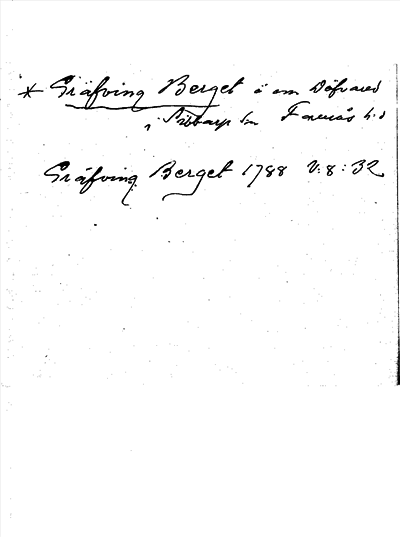 * Gräfving Berget ö om Döfvared
i Sibbarp sn Faurås hd
Gräfving Berget 1788 V:8:32